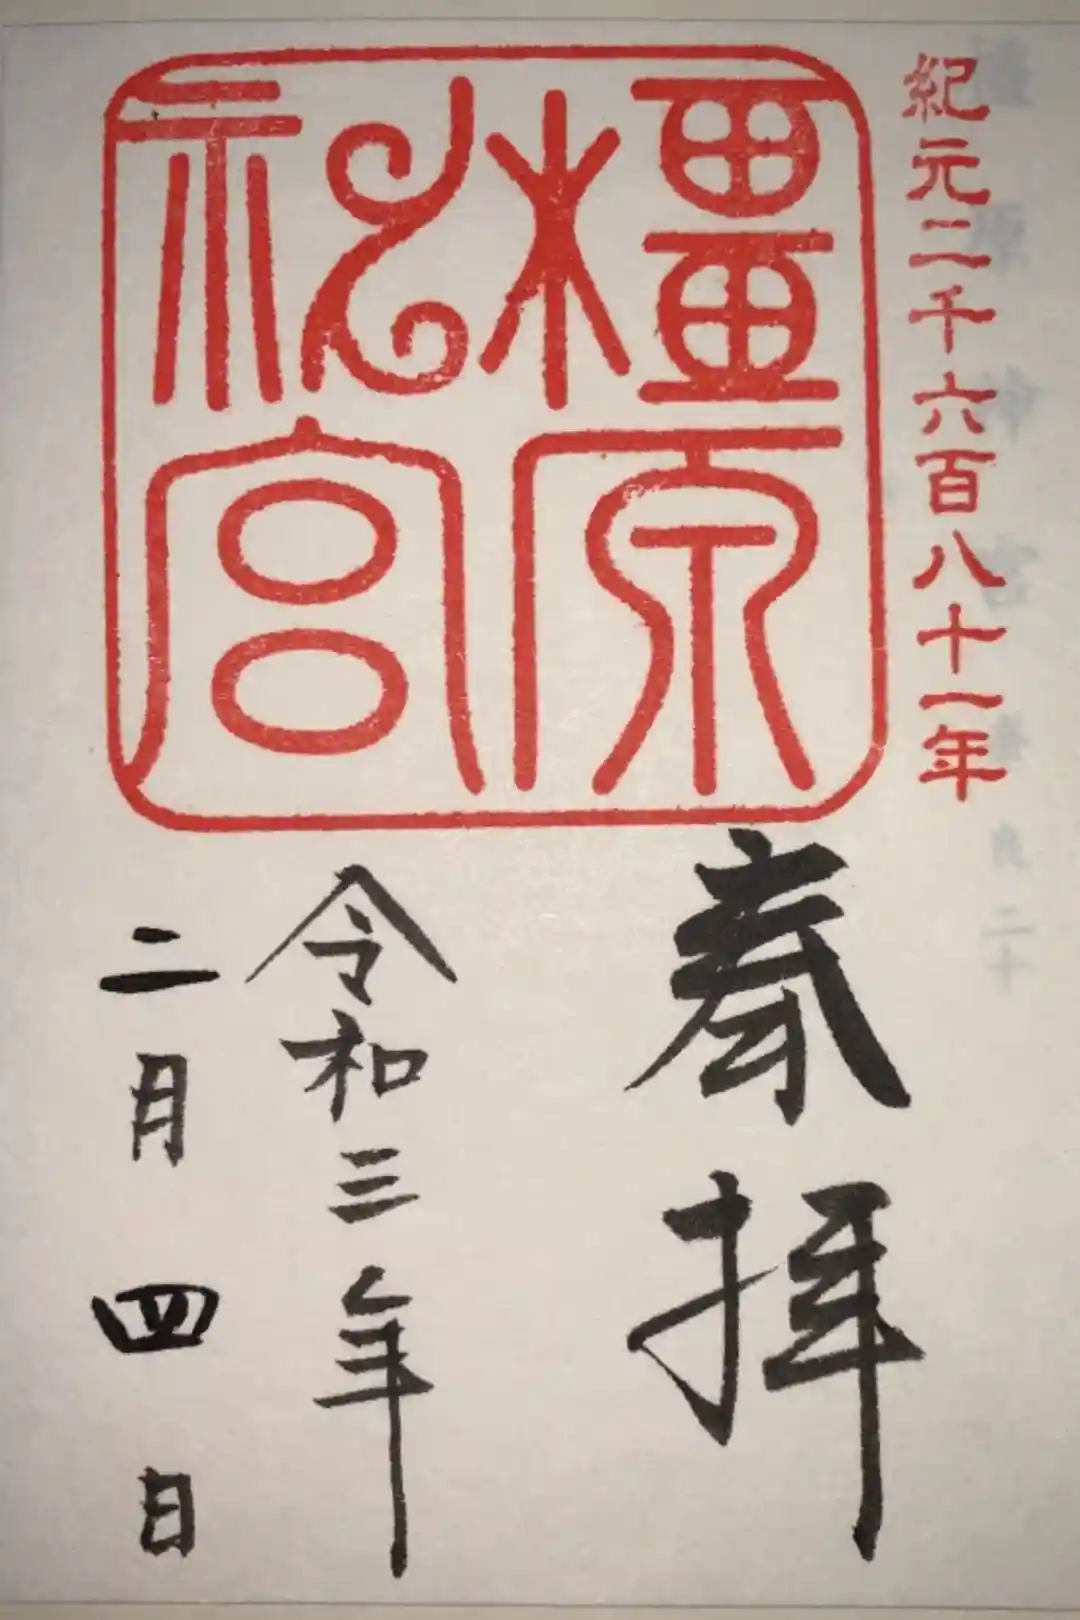 紀元二千六百八十一年
橿原
神宮
奉拝
令和三年
二月四日